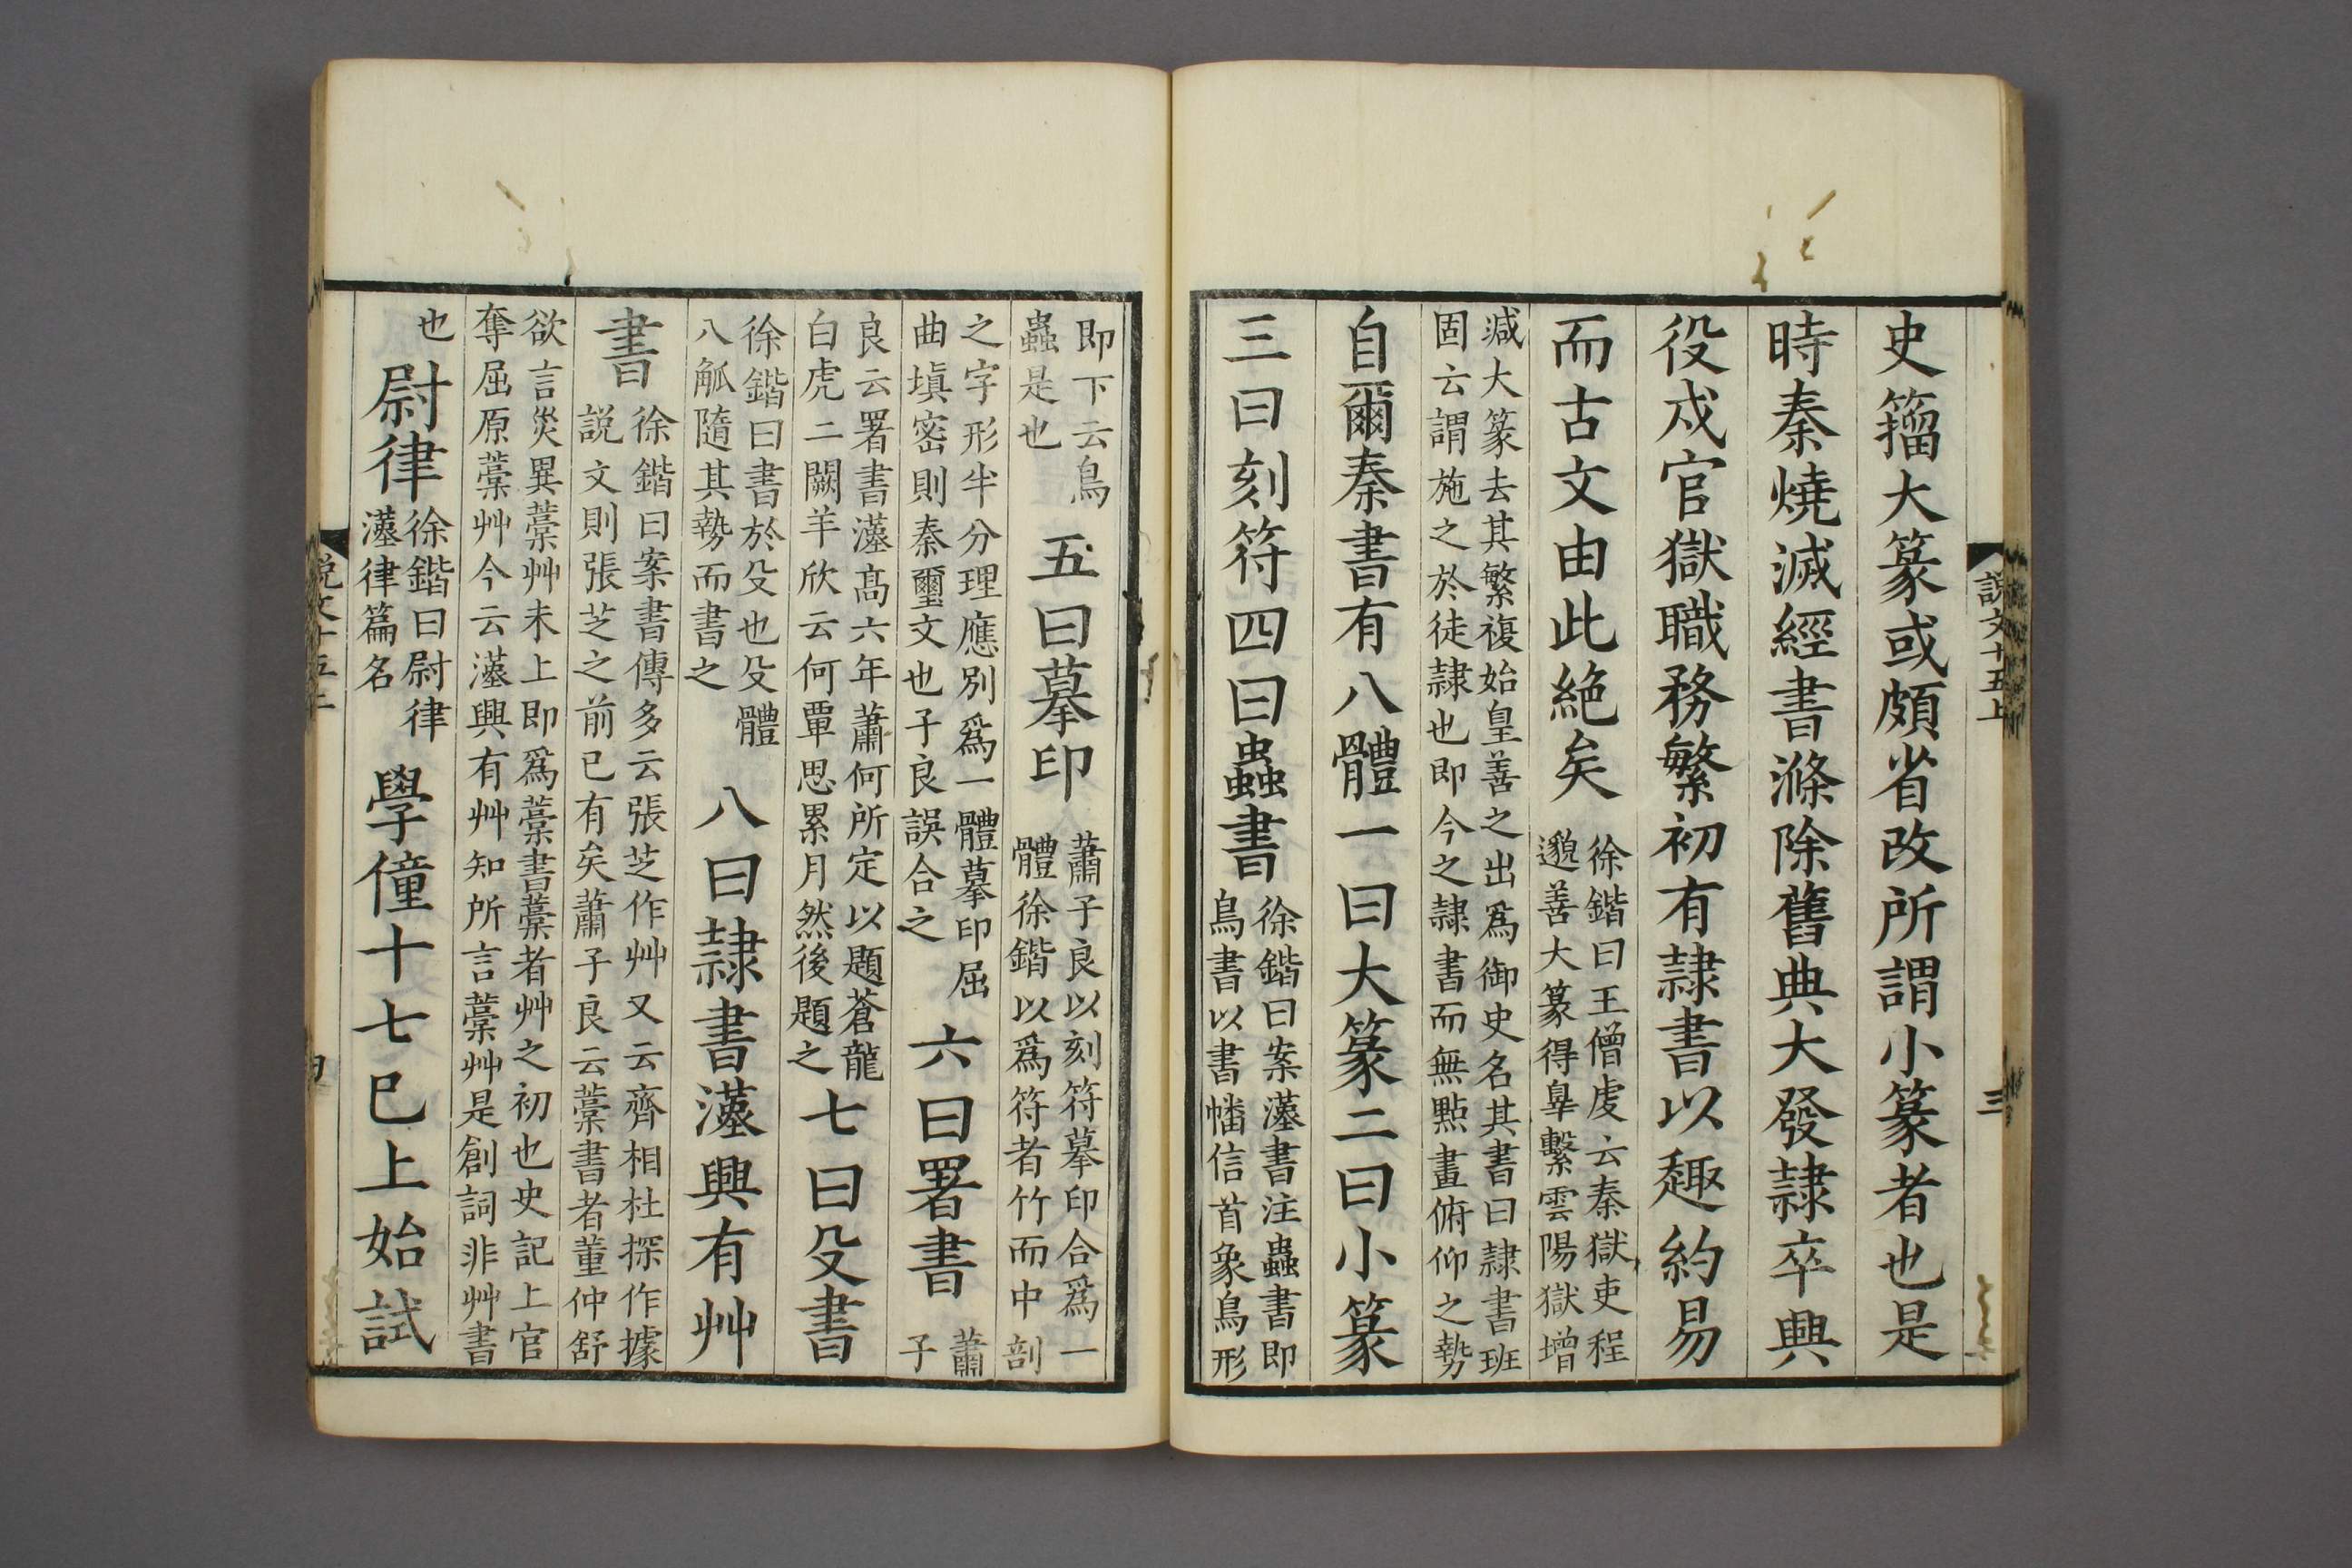 說文十五上
三
史籀大篆或頗省改所謂小篆者也是
時秦燒滅經書滌除舊典大發隷卒興
役戍官獄職務繁初有隷書以趣約易
而古文由此絶矣
徐鍇曰王僧虔云秦獄吏程
邈善大篆得辠繫雲陽獄增
減大篆去其繁複始皇善之出爲御史名其書曰隷書班
固云謂施之於徒隷也即今之隷書而無點畫俯仰之勢
自爾秦書有八體一曰大篆二曰小篆
三曰刻符四曰蟲書
徐鍇曰案漢書注蟲書即
鳥書以書幡信首象鳥形
即下云鳥
蟲是也
五曰摹印
蕭子良以刻符摹印合爲一
體徐鍇以爲符者竹而中剖
之字形半分理應別爲一體摹印屈
曲塡密則秦璽文也子良誤合之
六曰署書
蕭
子
良云署書漢高六年蕭何所定以題蒼龍
白虎二闕羊欣云何覃思累月然後題之
七曰殳書
徐鍇曰書於殳也殳體
八觚隨其勢而書之
八曰隷書漢興有艸
書
徐鍇曰案書傳多云張芝作艸又云齊相杜探作據
説文則張芝之前已有矣蕭子良云藁書者董仲舒
欲言災異藁艸未上即爲藁書藁者艸之初也史記上官
奪屈原藁艸今云漢興有艸知所言藁艸是創詞非艸書
也
尉律
徐鍇曰尉律
漢律篇名
學僮十七已上始試
説文十五上